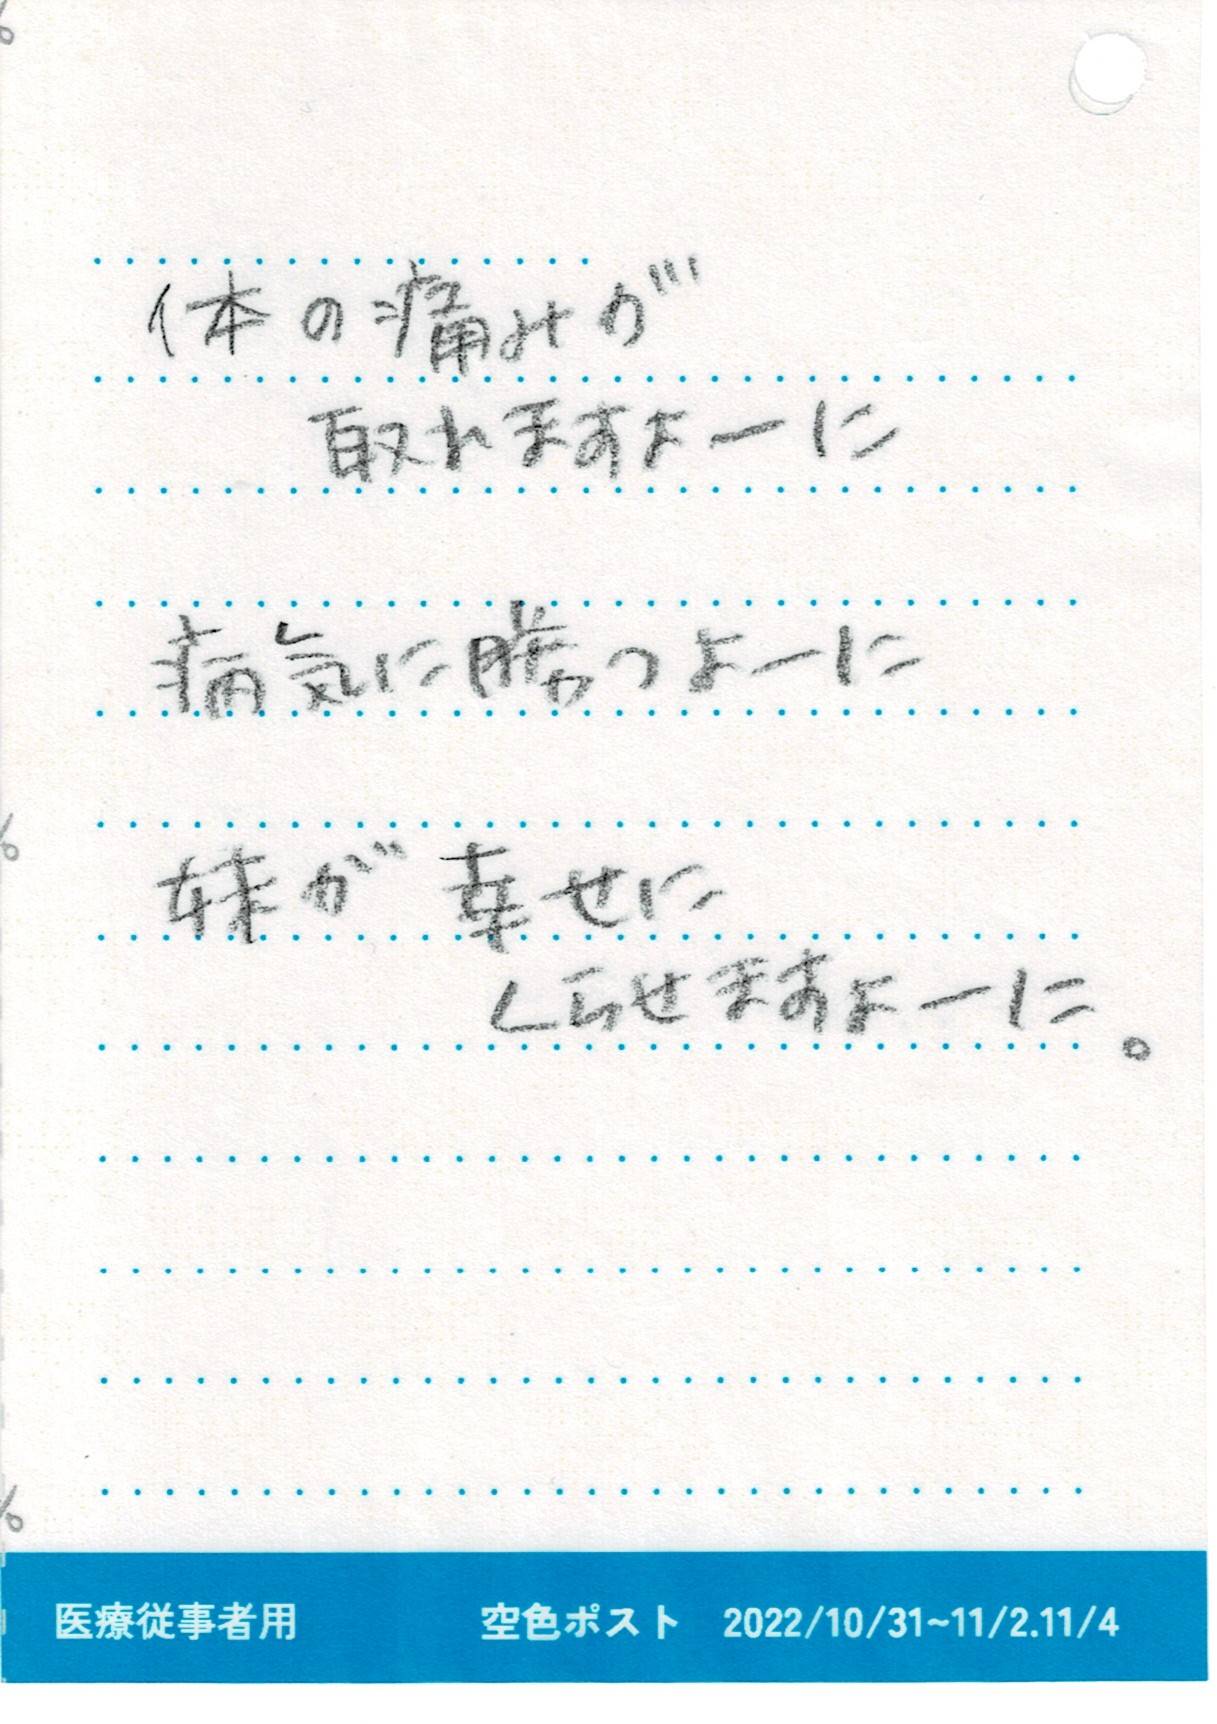 体の痛みが
取れますよーに
病気に勝つよーに
妹が 幸せに
くらせますよーに。
医療従事者用 空色ポスト 2022/10/31~11/2.11/4